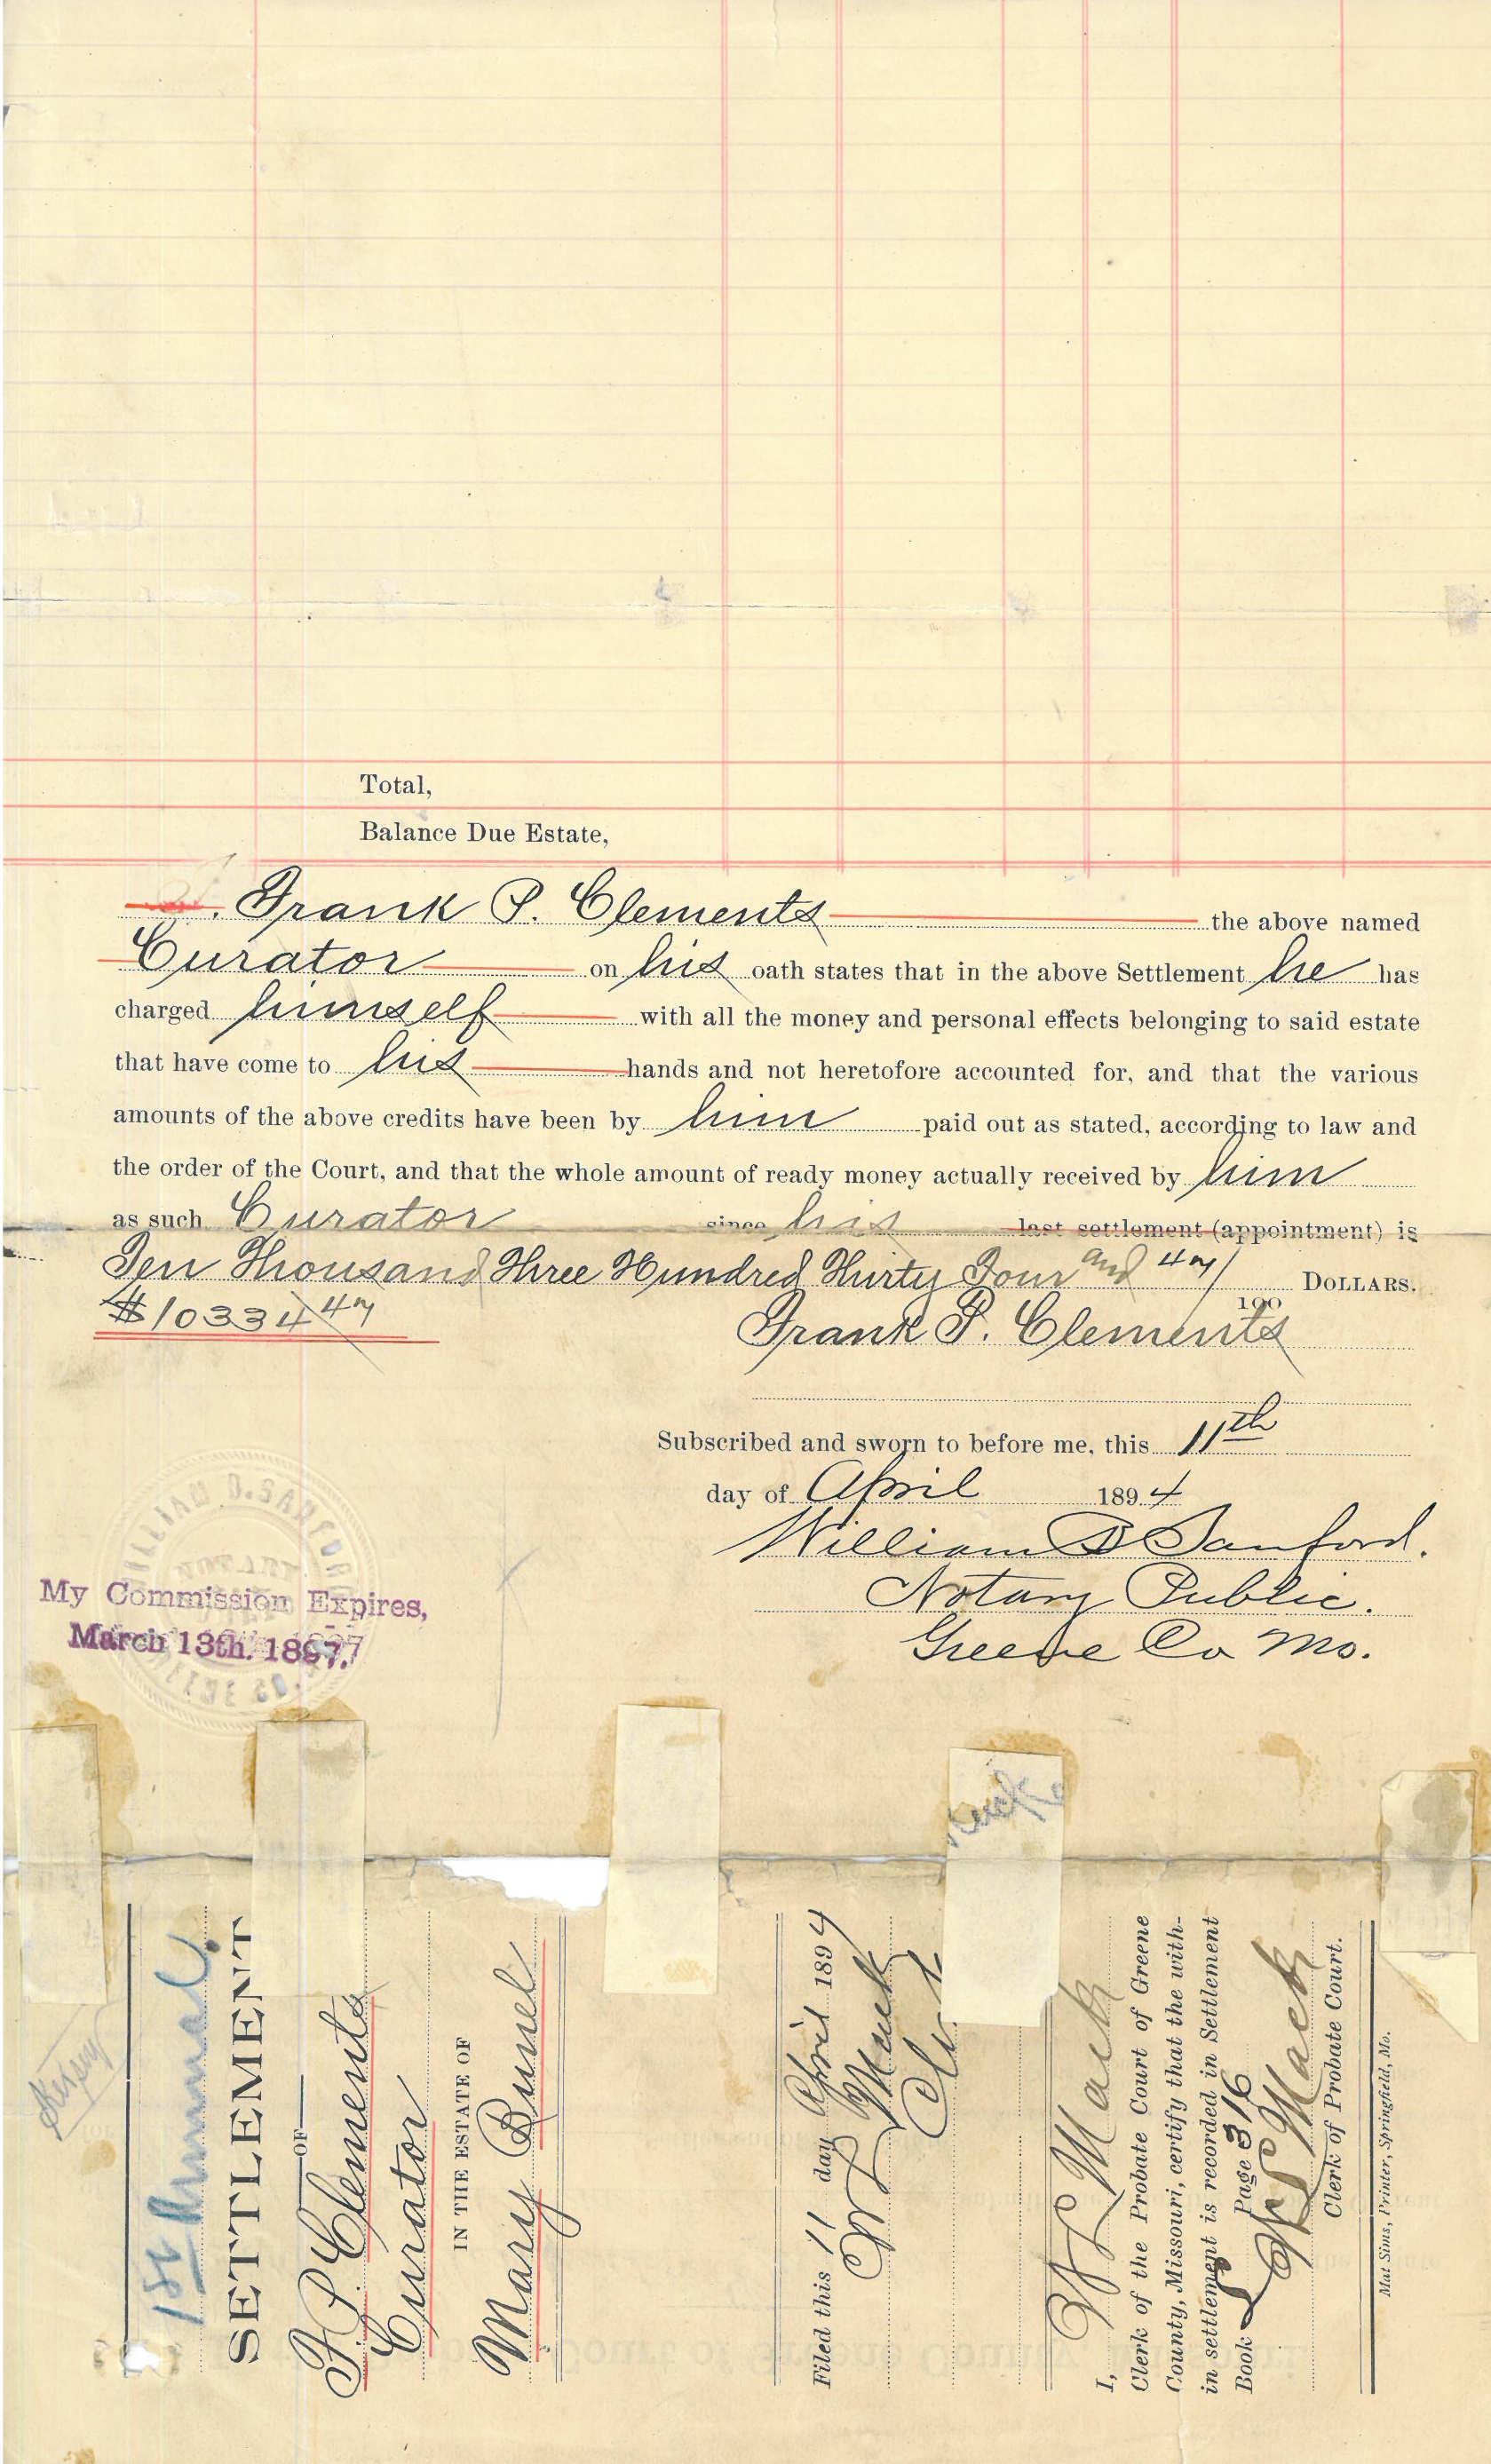 Total,
Balance Due Estate,
Frank P. Clements the above named
Curator on his oath states that in the above Settlement he has
charged himself with all the money and personal effects belonging to said estate
that have come to his hands and not heretofore accounted for, and that the various
amounts of the above credits have been by him paid out as stated, according to law and
the order of the Court, and that the whole amount of ready money actually received by him
as such Curator since his last settlement (appointment) is
Ten Thousand Three Hundred Thirty Four and 47/100 DOLLARS.
$10334 47
Frank P. Clements
Subscribed and sworn to before me, this 11th
day of April 1894
William D Sanford.
Notary Public.
Greene Co Mo.
WILLIAM D. SANFORD
My Commission Expires,
March 13th. 1897.
1st Annual
SETTLEMENT
OF
F. P. Clements
Curator
IN THE ESTATE OF
Mary
Filed this 11 day April 1894
Clk
I,
Clerk of the Probate Court of Greene
County, Missouri, certify that the with-
in settlement is recorded in Settlement
Book Page 316
Clerk of Probate Court.
Mat Sims, Printer, Springfield, Mo.